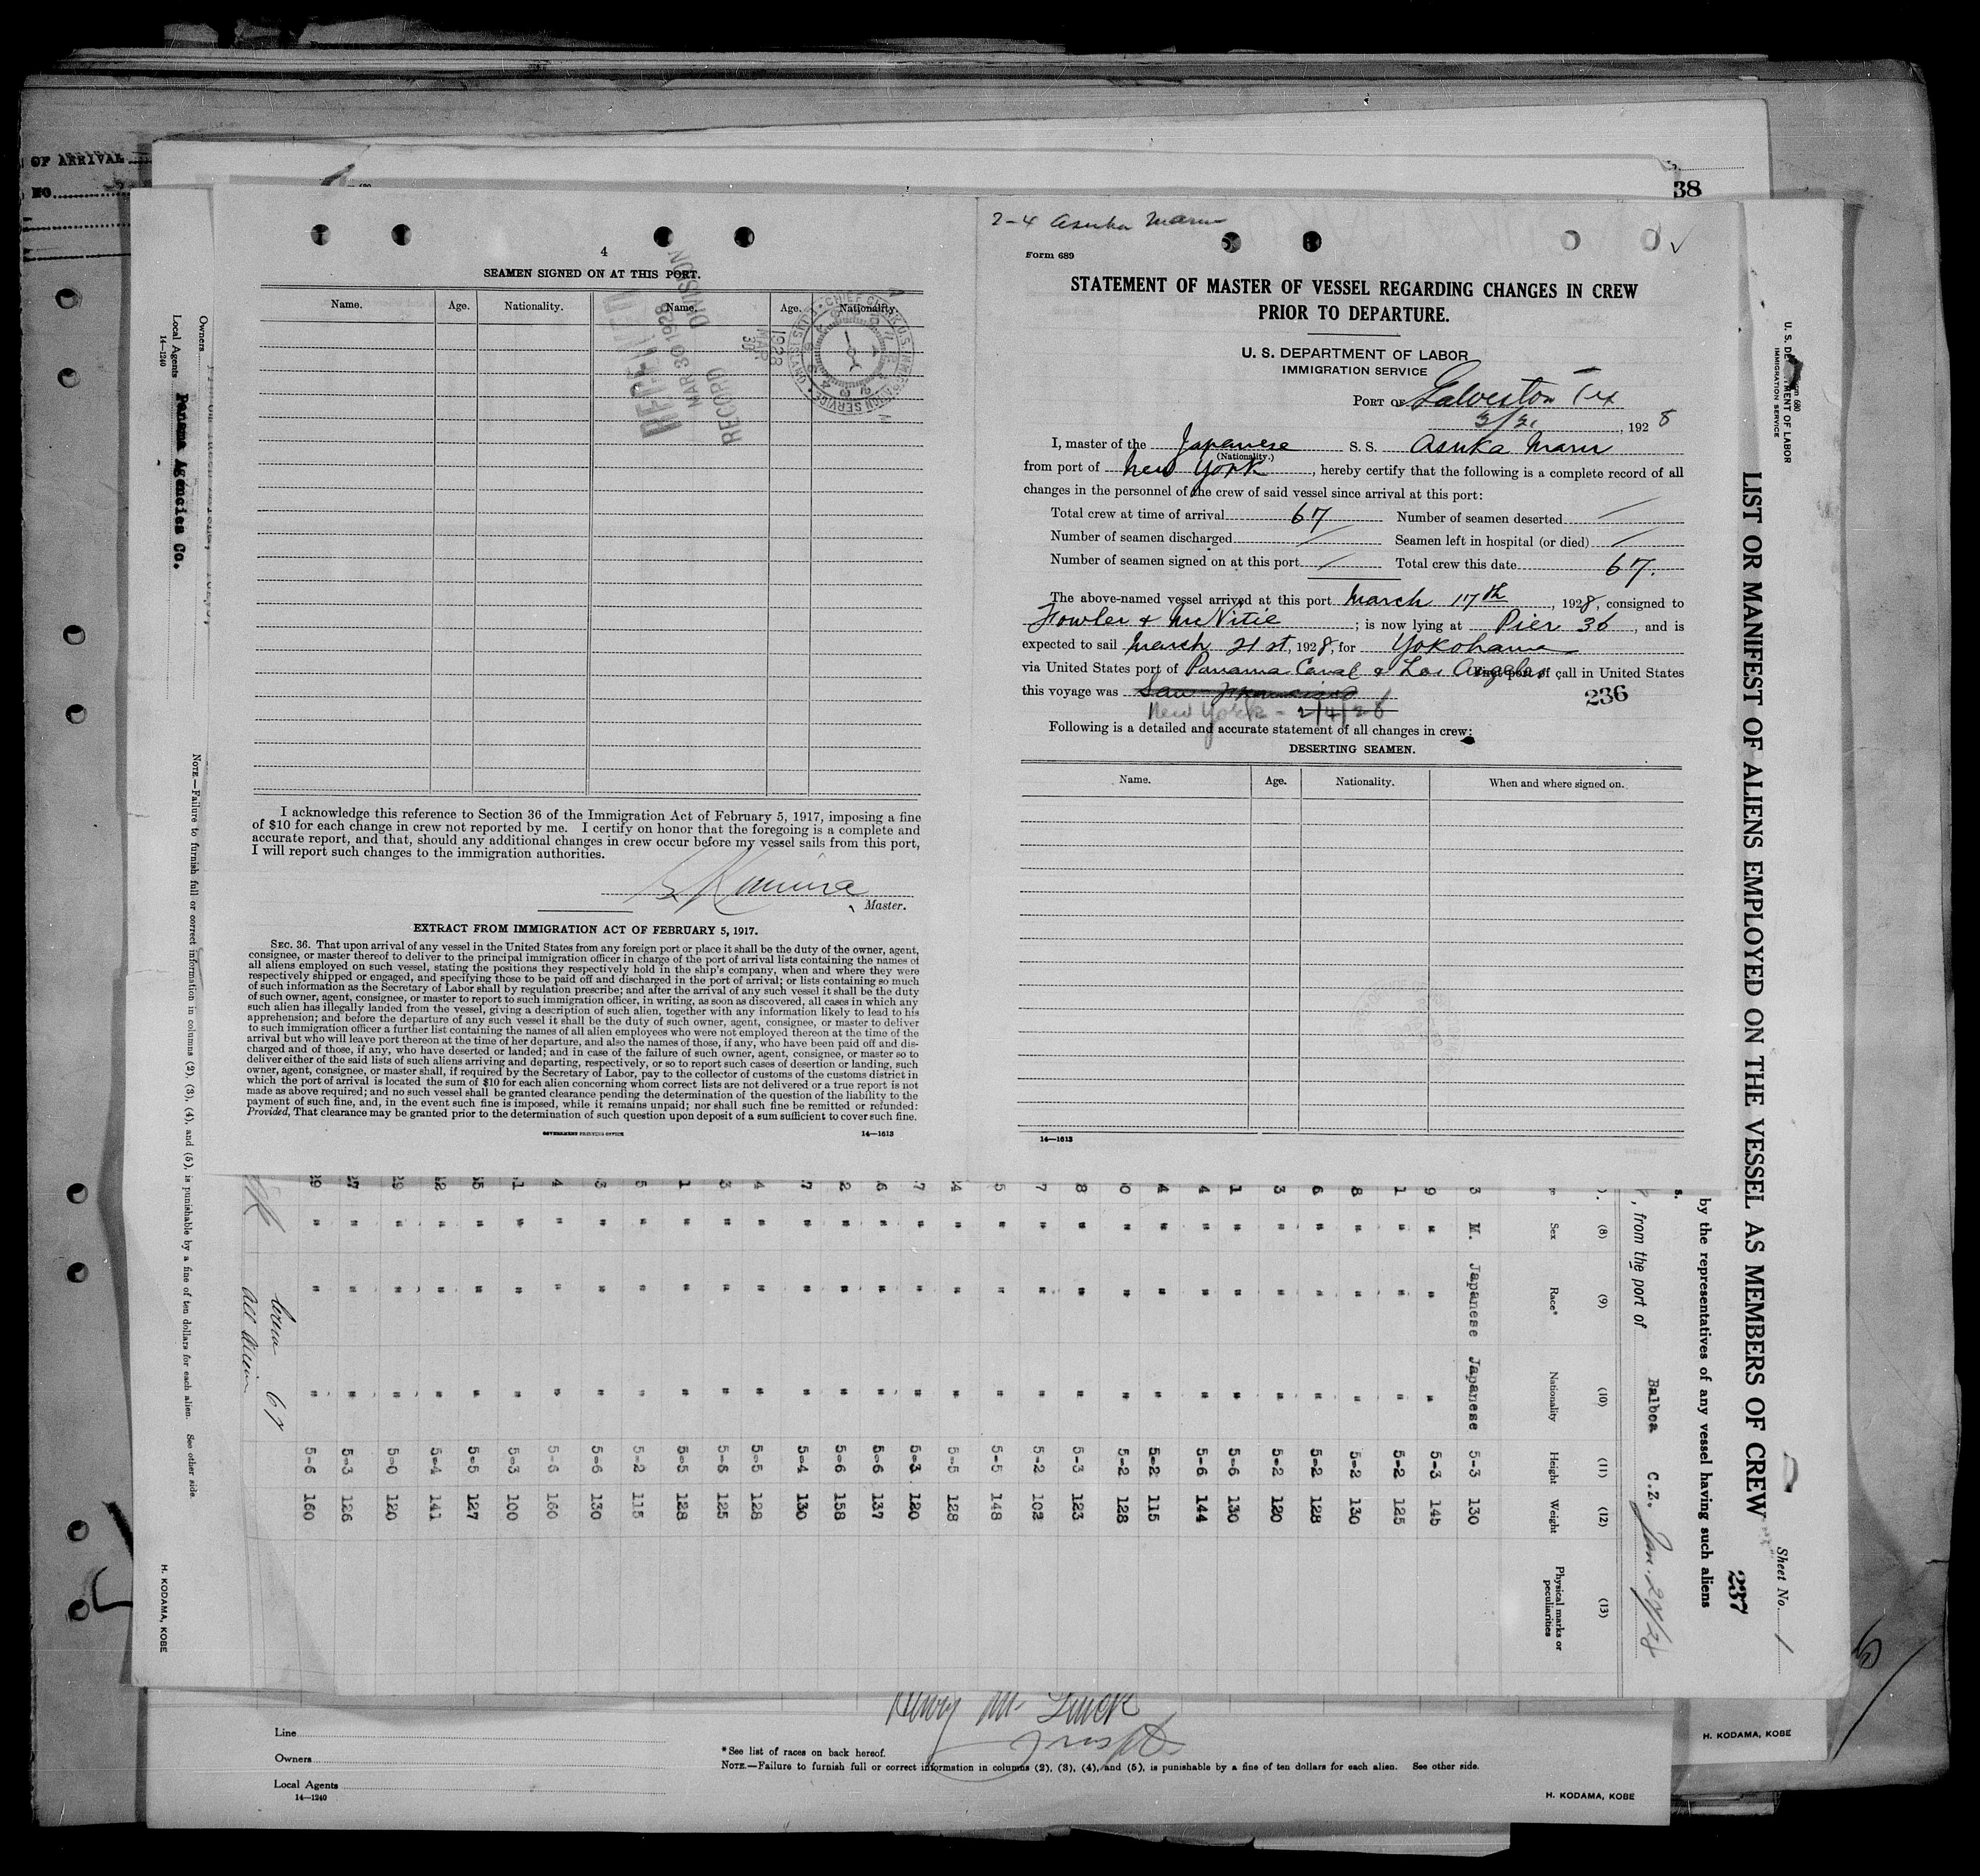 OF ARRIVAL
NO.
38
4
SEAMEN SIGNED ON AT THIS PORT.
Name. Age. Nationality. Name. Age. Nationality.
MAR 30 1928
RECORD DIVISION
1928
MAR
30
I acknowledge this reference to Section 36 of the Immigration Act of February 5, 1917, imposing a fine
of $10 for each change in crew not reported by me. I certify on honor that the foregoing is a complete and
accurate report, and that, should any additional changes in crew occur before my vessel sails from this port,
I will report such changes to the immigration authorities.
Master.
EXTRACT FROM IMMIGRATION ACT OF FEBRUARY 5, 1917.
SEC. 36. That upon arrival of any vessel in the United States from any foreign port or place it shall be the duty of the owner, agent,
consignee, or master thereof to deliver to the principal immigration officer in charge of the port of arrival lists containing the names of
all aliens employed on such vessel, stating the positions they respectively hold in the ship's company, when and where they were
respectively shipped or engaged, and specifying those to be paid off and discharged in the port of arrival; or lists containing so much
of such information as the Secretary of Labor shall by regulation prescribe; and after the arrival of any such vessel it shall be the duty
of such owner, agent, consignee, or master to report to such immigration officer, in writing, as soon as discovered, all cases in which any
such alien has illegally landed from the vessel, giving a description of such alien, together with any information likely to lead to his
apprehension; and before the departure of any such vessel it shall be the duty of such owner, agent, consignee, or master to deliver
to such immigration officer a further list containing the names of all alien employees who were not employed thereon at the time of the
arrival but who will leave port thereon at the time of her departure, and also the names of those, if any, who have been paid off and dis-
charged and of those, if any, who have deserted or landed; and in case of the failure of such owner, agent, consignee, or master so to
deliver either of the said lists of such aliens arriving and departing, respectively, or so to report such cases of desertion or landing, such
owner, agent, consignee, or master shall, if required by the Secretary of Labor, pay to the collector of customs of the customs district in
which the port of arrival is located the sum of $10 for each alien concerning whom correct lists are not delivered or a true report is not
made as above required; and no such vessel shall be granted clearance pending the determination of the question of the liability to the
payment of such fine, and, in the event such fine is imposed, while it remains unpaid; nor shall such fine be remitted or refunded:
Provided, That clearance may be granted prior to the determination of such question upon deposit of a sum sufficient to cover such fine.
GOVERNMENT PRINTING OFFICE 14—1613
2-4 Asuka Maru
Form 689
STATEMENT OF MASTER OF VESSEL REGARDING CHANGES IN CREW
PRIOR TO DEPARTURE.
U. S. DEPARTMENT OF LABOR
IMMIGRATION SERVICE
PORT OF Galveston Tex
3/21, 1928
I, master of the Japanese S. S. Asuka Maru
(Nationality.)
from port of New York, hereby certify that the following is a complete record of all
changes in the personnel of the crew of said vessel since arrival at this port:
Total crew at time of arrival 67 Number of seamen deserted /
Number of seamen discharged / Seamen left in hospital (or died) /
Number of seamen signed on at this port / Total crew this date 67.
The above-named vessel arrived at this port March 17th, 1928, consigned to
Fowler & McVitie; is now lying at Pier 36, and is
expected to sail March 21st, 1928, for Yokohama
via United States port of Panama Canal & Los Angeles call in United States
this voyage was San Francisco
236
New York - 2/4/28
Following is a detailed and accurate statement of all changes in crew:
DESERTING SEAMEN.
Name. Age. Nationality. When and where signed on.
14—1613
Owners
Local Agents Panama Agencies Co.
14—1240
NOTE.—Failure to furnish full or correct information in columns (2), (3), (4), and (5), is punishable by a fine of ten dollars for each alien. See other side.
H. KODAMA, KOBE
U. S. DEPARTMENT OF LABOR
IMMIGRATION SERVICE
LIST OR MANIFEST OF ALIENS EMPLOYED ON THE VESSEL AS MEMBERS OF CREW
Sheet No. 1
237
by the representatives of any vessel having such aliens
, from the port of Balboa C.Z. Jan. 27/28
(8) (9) (10) (11) (12) (13)
Sex Race* Nationality Height Weight Physical marks or peculiarities
3 M. Japanese Japanese 5-3 130
9 " " " 5-3 145
1 " " " 5-2 125
8 " " " 5-2 130
6 " " " 5-2 128
3 " " " 5-2 120
1 " " " 5-6 130
4 " " " 5-6 144
4 " " " 5-2 115
0 " " " 5-2 128
8 " " " 5-3 123
7 " " " 5-2 102
5 " " " 5-5 148
4 " " " 5-5 128
7 " " " 5-3 120
6 " " " 5-6 137
2 " " " 5-6 158
7 " " " 5-4 130
4 " " " 5-5 128
3 " " " 5-6 125
1 " " " 5-5 128
5 " " " 5-2 115
3 " " " 5-6 130
4 " " " 5-6 160
1 " " " 5-3 100
5 " " " 5-5 127
2 " " " 5-4 141
9 " " " 5-0 120
7 " " " 5-3 126
9 " " " 5-6 160
67
Line
Owners
Local Agents
14—1240
*See list of races on back hereof.
NOTE.—Failure to furnish full or correct information in columns (2), (3), (4), and (5), is punishable by a fine of ten dollars for each alien. See other side.
H. KODAMA, KOBE
H. KODAMA, KOBE